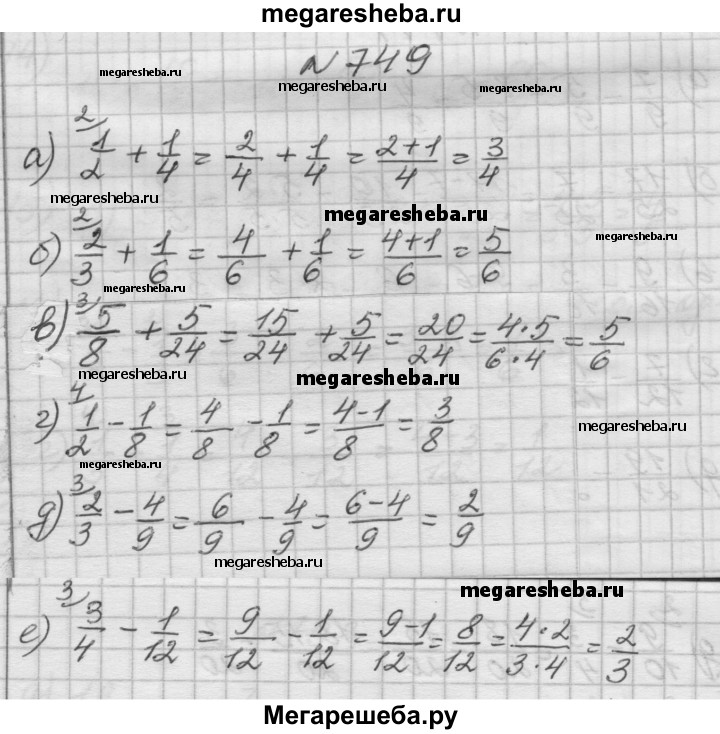 megaresheba.ru
№ 749
megaresheba.ru
megaresheba.ru
megaresheba.ru
а) ²⁄ 1/2 + 1/4 = 2/4 + 1/4 = (2+1)/4 = 3/4
megaresheba.ru
megaresheba.ru
megaresheba.ru
б) ²⁄ 2/3 + 1/6 = 4/6 + 1/6 = (4+1)/6 = 5/6
megaresheba.ru
в) ³⁄ 5/8 + 5/24 = 15/24 + 5/24 = 20/24 = (4·5)/(6·4) = 5/6
megaresheba.ru
megaresheba.ru
г) ⁴⁄ 1/2 - 1/8 = 4/8 - 1/8 = (4-1)/8 = 3/8
megaresheba.ru
megaresheba.ru
д) ³⁄ 2/3 - 4/9 = 6/9 - 4/9 = (6-4)/9 = 2/9
megaresheba.ru
megaresheba.ru
е) ³⁄ 3/4 - 1/12 = 9/12 - 1/12 = (9-1)/12 = 8/12 = (4·2)/(3·4) = 2/3
Мегарешеба.ру